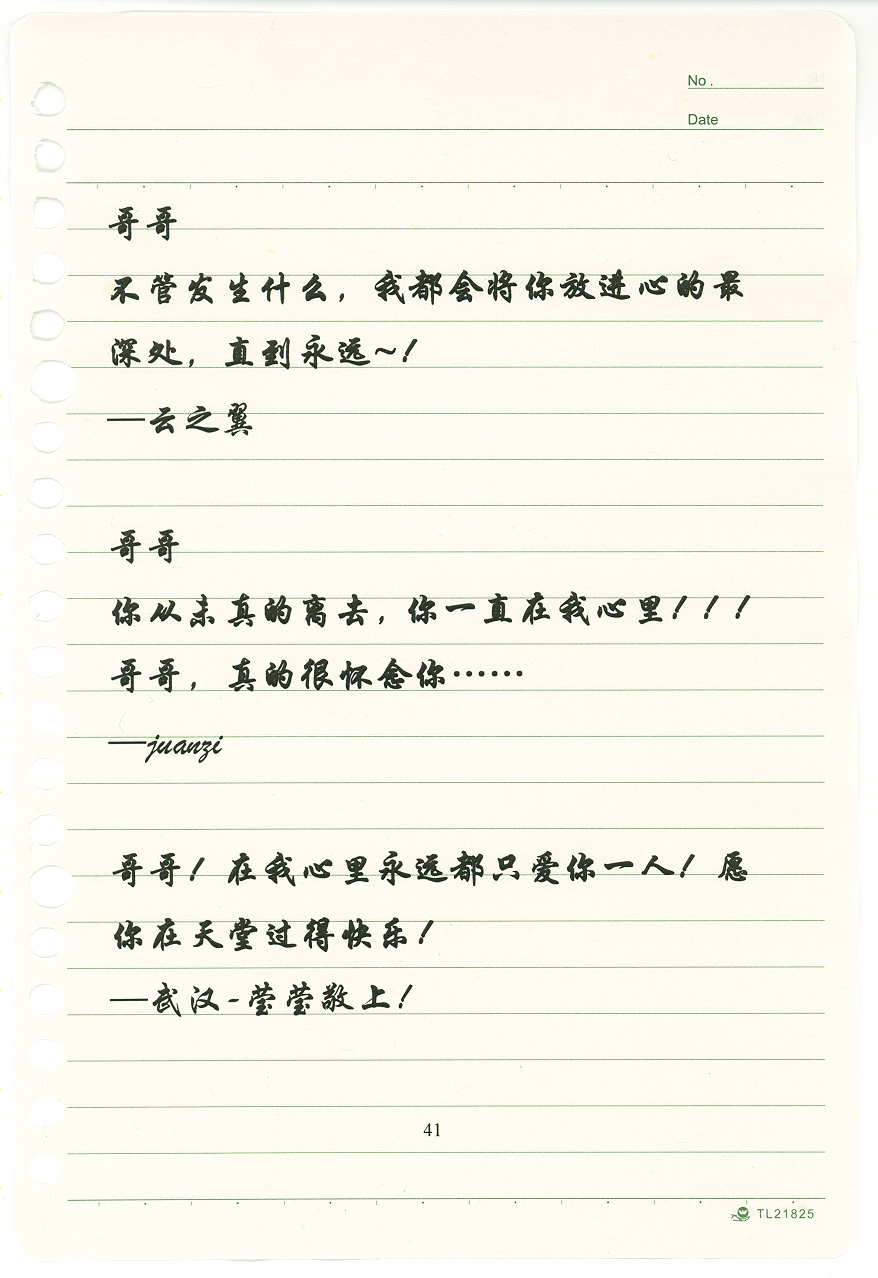 No .
Date
哥哥
不管发生什么，我都会将你放进心的最
深处，直到永远~！
—云之翼
哥哥
你从未真的离去，你一直在我心里！！！
哥哥，真的很怀念你……
—juanzi
哥哥！在我心里永远都只爱你一人！愿
你在天堂过得快乐！
—武汉-莹莹敬上！
41
TL21825